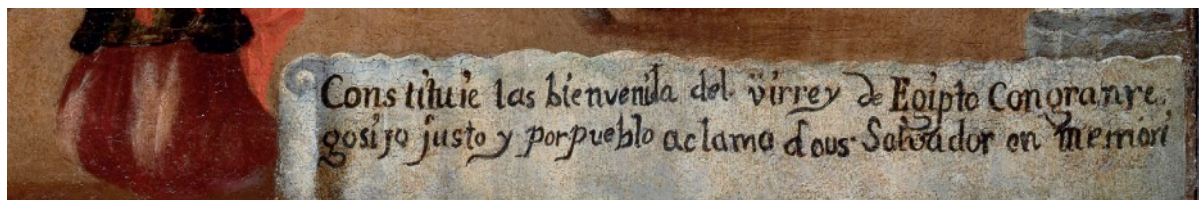 Constituie las bienvenida del virrey de Egipto Congranre.
gosijo justo y porpueblo aclama dous Salvador en memori